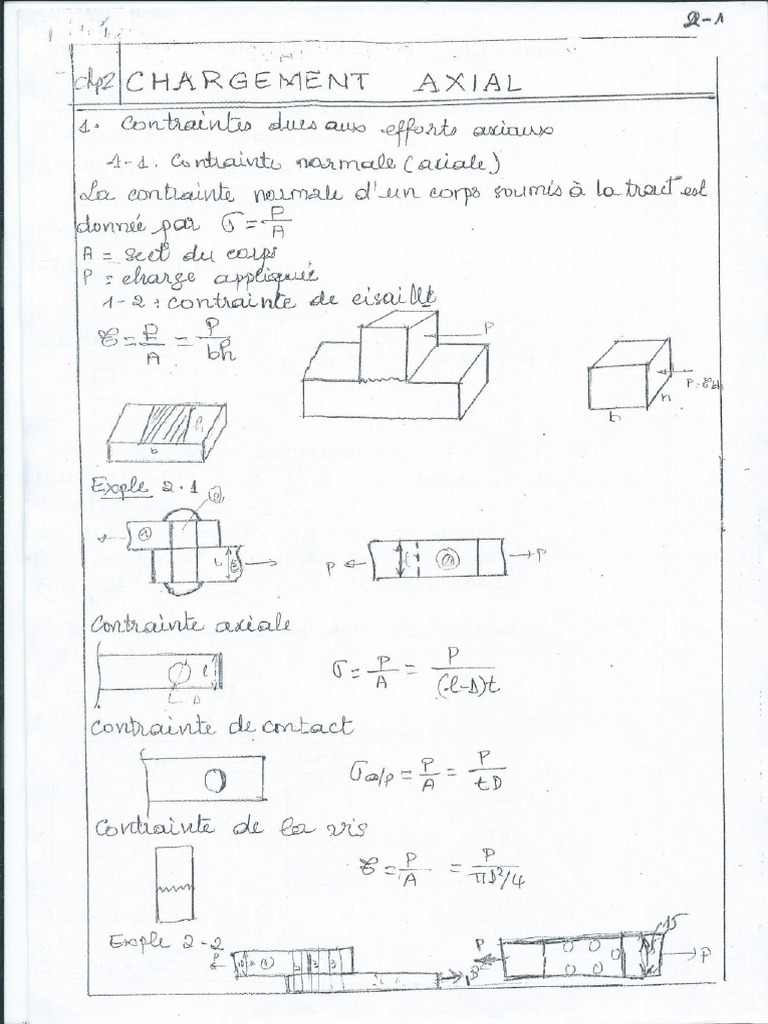 2-1
chp2 CHARGEMENT AXIAL
1. Contraintes dues aux efforts axiaux
1-1. Contrainte normale (axiale)
La contrainte normale d'un corps soumis à la tract° est
donnée par σ = P/A
A = sect du corps
P = charge appliquée
1-2 : contrainte de cisaillt
τ = P/A = P/bh
P
P = τbh
h
b
h
b
Exple 2.1
P
P
Contrainte axiale
l
D
σ = P/A = P/(l-D)t
Contrainte de contact
= P/A = P/tD
Contrainte de la vis
τ = P/A = P/πD²/4
Exple 2-2
P
1 2 3
P
P
15
P